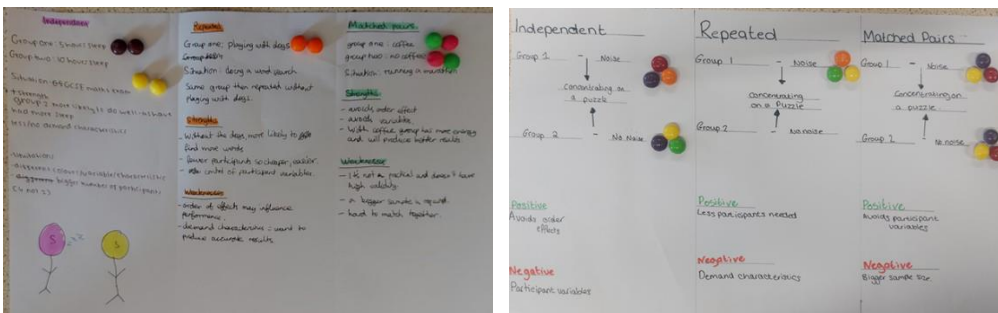 Independent
Group one: 5 hours sleep
Group two: 10 hours sleep
Situation: GCSE maths exam
+ strength
group 2 more likely to do well as have
had more sleep
less/no demand characteristics
bigger number of participants
S
Repeated
Group one: playing with dogs
Situation: doing a word search
Same group then repeated without
playing with dogs.
Strengths
- Without the dogs more likely to
find more words
- fewer participants so cheaper, easier.
control of participant variables.
Weaknesses
- order of effects may influence
performance.
- demand characteristics : want to
produce accurate results.
Matched pairs.
group one : coffee
group two : no coffee
Situation : running a marathon
Strengths
- avoids order effect
- avoids variable.
- With coffee group has more energy
and will produce better results
Weaknesses
- It's not and doesn't have
high validity.
- a bigger sample is required.
- hard to match together.
Independent
Group 1 - Noise
concentrating on
a puzzle
Group 2 - No Noise
Positive
Avoids order
effects
Negative
Participant variables
Repeated
Group 1 - Noise
concentrating
on a Puzzle
Group 2 - No noise
Positive
Less participants needed
Negative
Demand characteristics
Matched Pairs
Group 1 - Noise
Concentrating on
a puzzle
Group 2 - No noise
Positive
Avoids participant
variables
Negative
Bigger sample size.